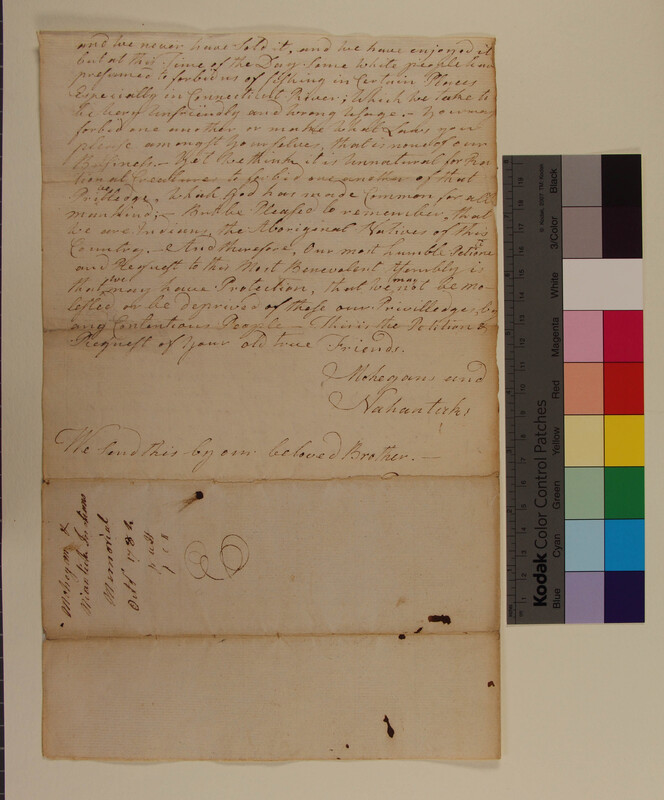 and we never have Sold it, and we have enjoyed it
but at this Time of the Day Some white people have
presumed to forbid us of fishing in Certain Places
Especially in Connecticut River; Which we take to
be very unfriendly and wrong Usage. – You may
forbid one another or make what Laws you
please amongst Yourselves, that is none of our
Business. – Yet we think it is unnatural for Ra
tional Creatures to forbid one another of that
Priviledge, Which God has made Common for all
mankind; – But be Pleased to remember, that
we are Indians, the Aboriginal Natives of this
Country. – And therefore, Our most humble Petition
and Request to this Most Benevolent Assembly is
that we may have Protection, that we may not be mo
lested or be deprived of these our Priviledges by
any Contentious People – This is the Petition &
Request of Your old true Friends.
Mohegans and
Nahantick
We Send this by our beloved Brother. –
Mohegan &
Indians
Memorial
Octr 1786
Kodak Color Control Patches
© Kodak, 2007 TM: Kodak
Blue
Cyan
Green
Yellow
Red
Magenta
White
3/Color
Black